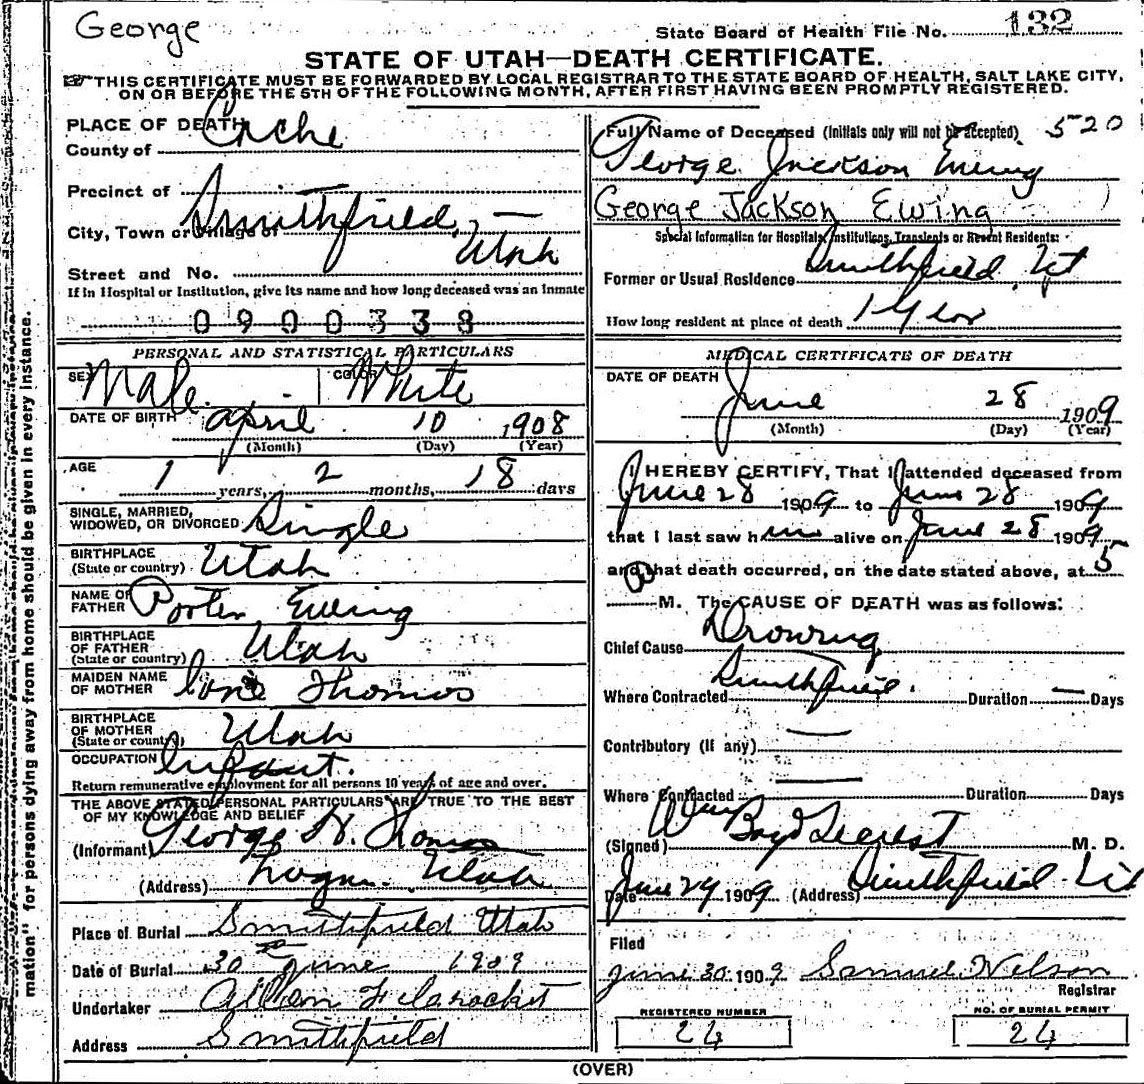 George
State Board of Health File No. 132
STATE OF UTAH—DEATH CERTIFICATE.
THIS CERTIFICATE MUST BE FORWARDED BY LOCAL REGISTRAR TO THE STATE BOARD OF HEALTH, SALT LAKE CITY,
ON OR BEFORE THE 5TH OF THE FOLLOWING MONTH, AFTER FIRST HAVING BEEN PROMPTLY REGISTERED.
PLACE OF DEATH
County of Cache
Precinct of
City, Town or Village of Smithfield, Utah
Street and No.
If in Hospital or Institution, give its name and how long deceased was an inmate
0900338
PERSONAL AND STATISTICAL PARTICULARS
SEX Male COLOR White
DATE OF BIRTH April 10 1908
(Month) (Day) (Year)
AGE
1 years, 2 months, 18 days
SINGLE, MARRIED,
WIDOWED, OR DIVORCED Single
BIRTHPLACE
(State or country) Utah
NAME OF
FATHER Porter Ewing
BIRTHPLACE
OF FATHER
(State or country) Utah
MAIDEN NAME
OF MOTHER Thomas
BIRTHPLACE
OF MOTHER
(State or country) Utah
OCCUPATION Infant.
Return remunerative employment for all persons 10 years of age and over.
THE ABOVE STATED PERSONAL PARTICULARS ARE TRUE TO THE BEST
OF MY KNOWLEDGE AND BELIEF
(Informant) George H. Thomas
(Address) Logan. Utah
Place of Burial Smithfield Utah
Date of Burial 30 June 1909
Undertaker
Address Smithfield
Full Name of Deceased (Initials only will not be accepted) 520
George Jackson Ewing
George Jackson Ewing
Special Information for Hospitals, Institutions, Transients or Recent Residents:
Former or Usual Residence Smithfield Ut
How long resident at place of death 1 Year
MEDICAL CERTIFICATE OF DEATH
DATE OF DEATH
June 28 1909
(Month) (Day) (Year)
I HEREBY CERTIFY, That I attended deceased from
June 28 1909 to June 28 1909
that I last saw him alive on June 28 1909
and that death occurred, on the date stated above, at 5
P M. The CAUSE OF DEATH was as follows:
Chief Cause Drowning
Where Contracted Smithfield. Duration — Days
Contributory (If any)
Where Contracted Duration Days
(Signed) Wm Boyd M. D.
Date June 29 1909 (Address) Smithfield Ut
Filed
June 30 1909 Samuel Nelson
Registrar
REGISTERED NUMBER
24
NO. OF BURIAL PERMIT
24
mation" for persons dying away from home should be given in every instance.
(OVER)